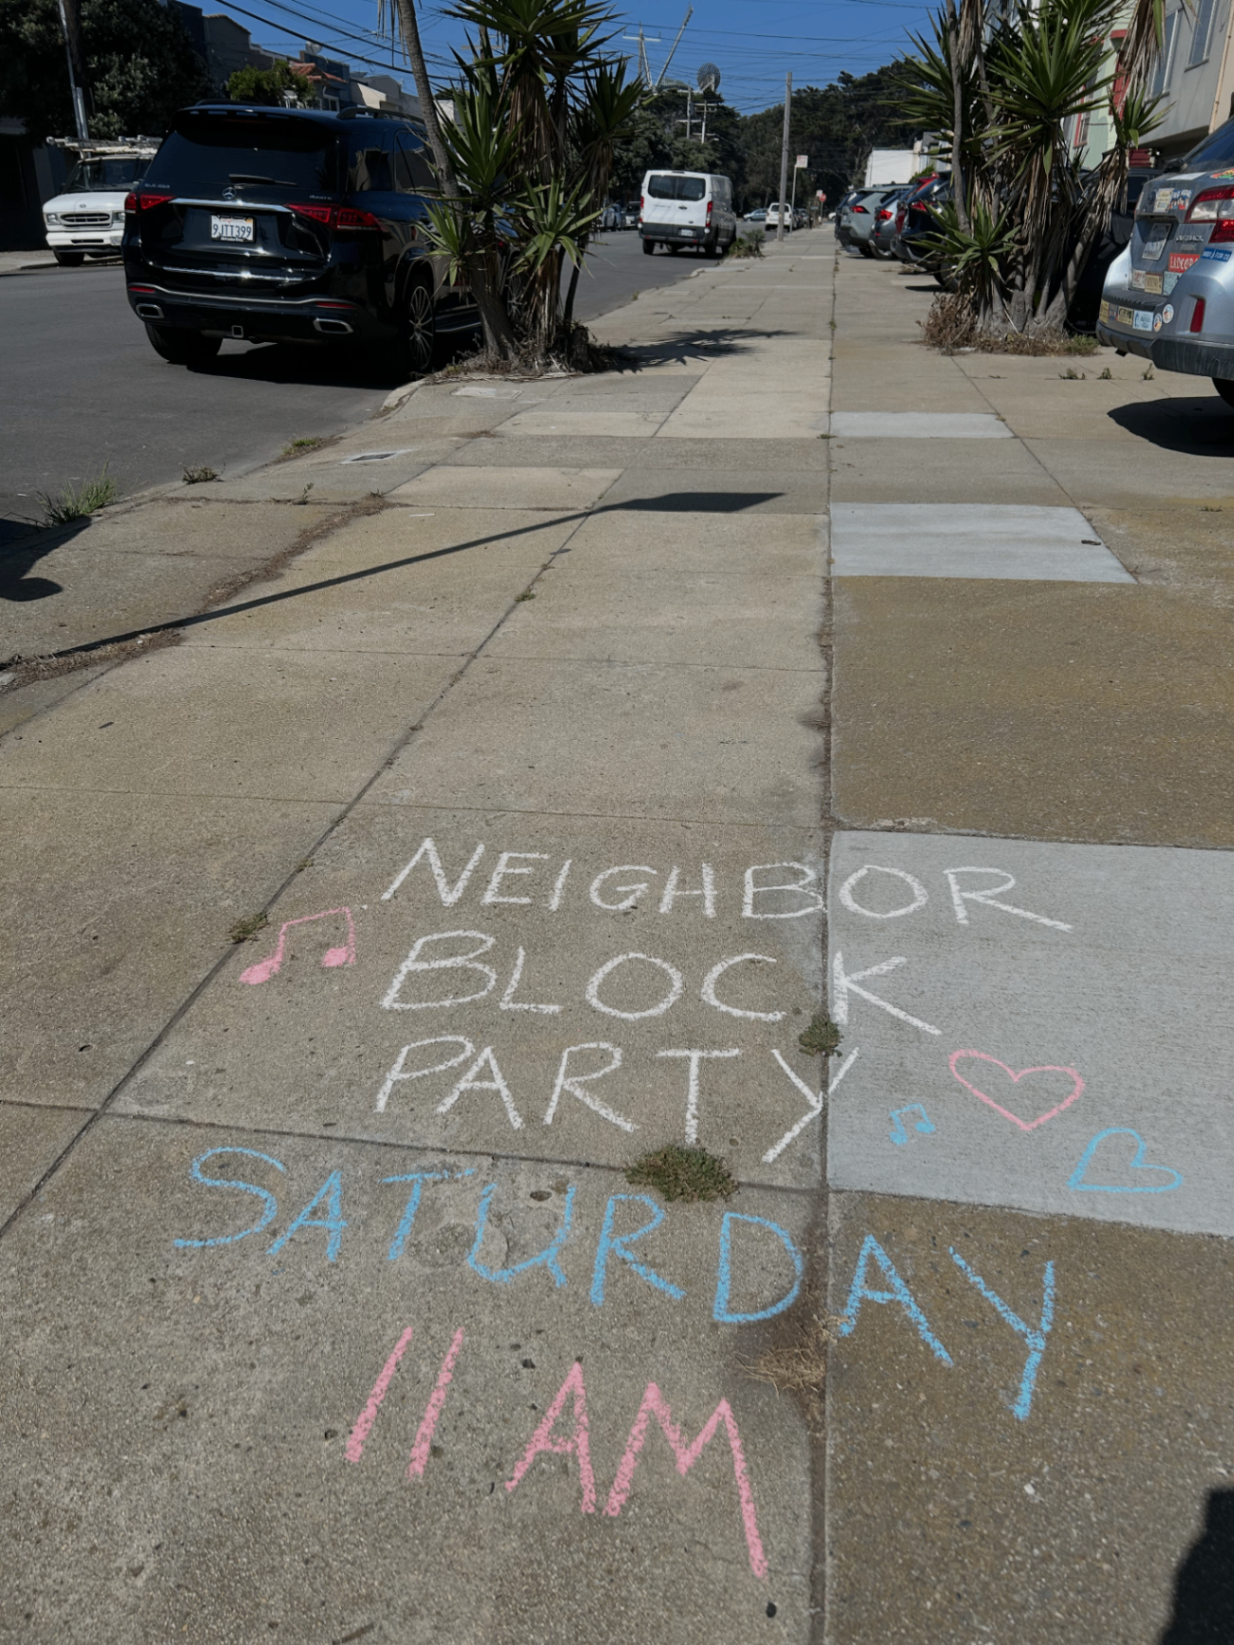 9JTT399
NEIGHBOR
BLOCK
PARTY
SATURDAY
11 AM